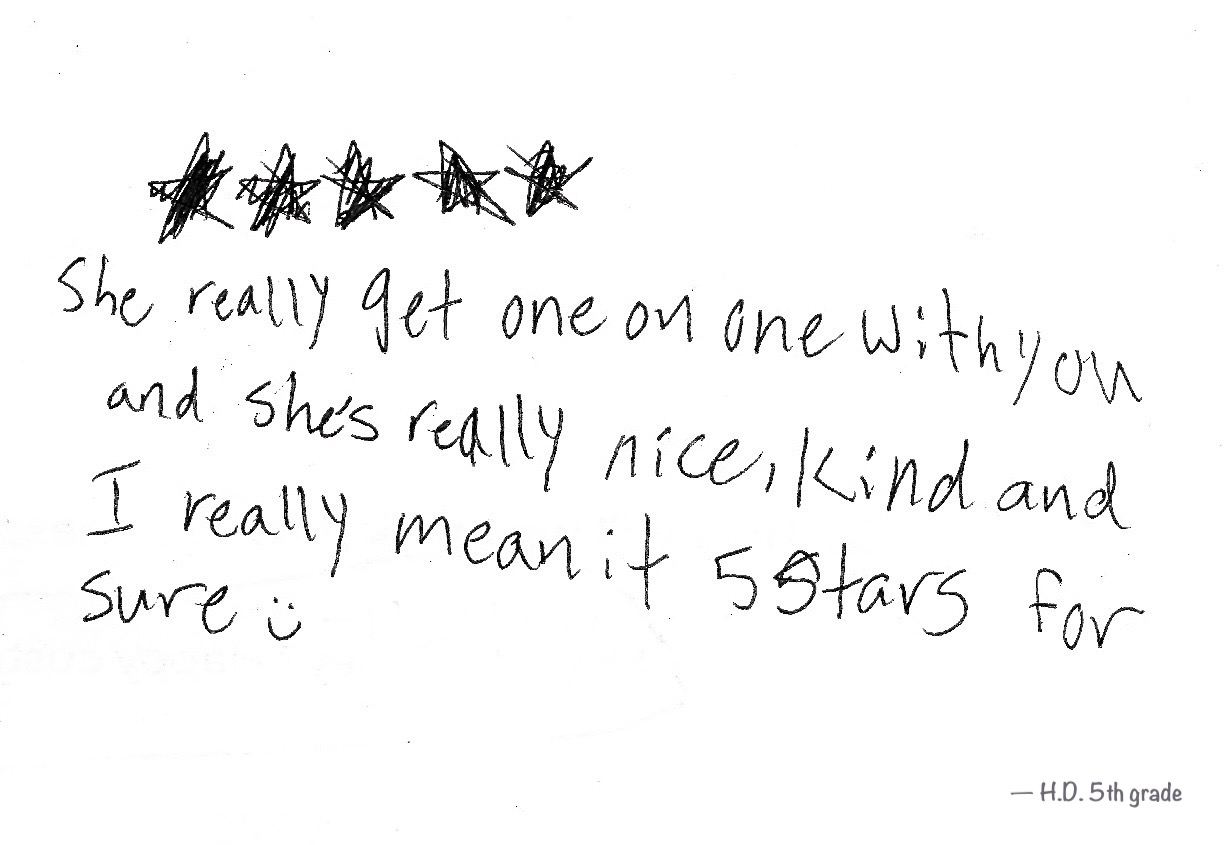 She really get one on one with you
and she's really nice, kind and
I really mean it 5 stars for
sure :)
— H.D. 5th grade